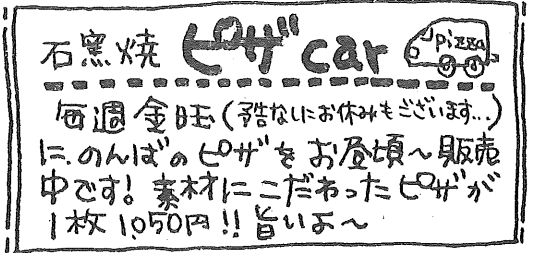 石窯焼 ピザcar pizza
毎週金曜(予告なしにお休みもございます…)
に、のんばのピザをお昼頃〜販売
中です! 素材にこだわったピザが
1枚1,050円!! 旨いよ〜